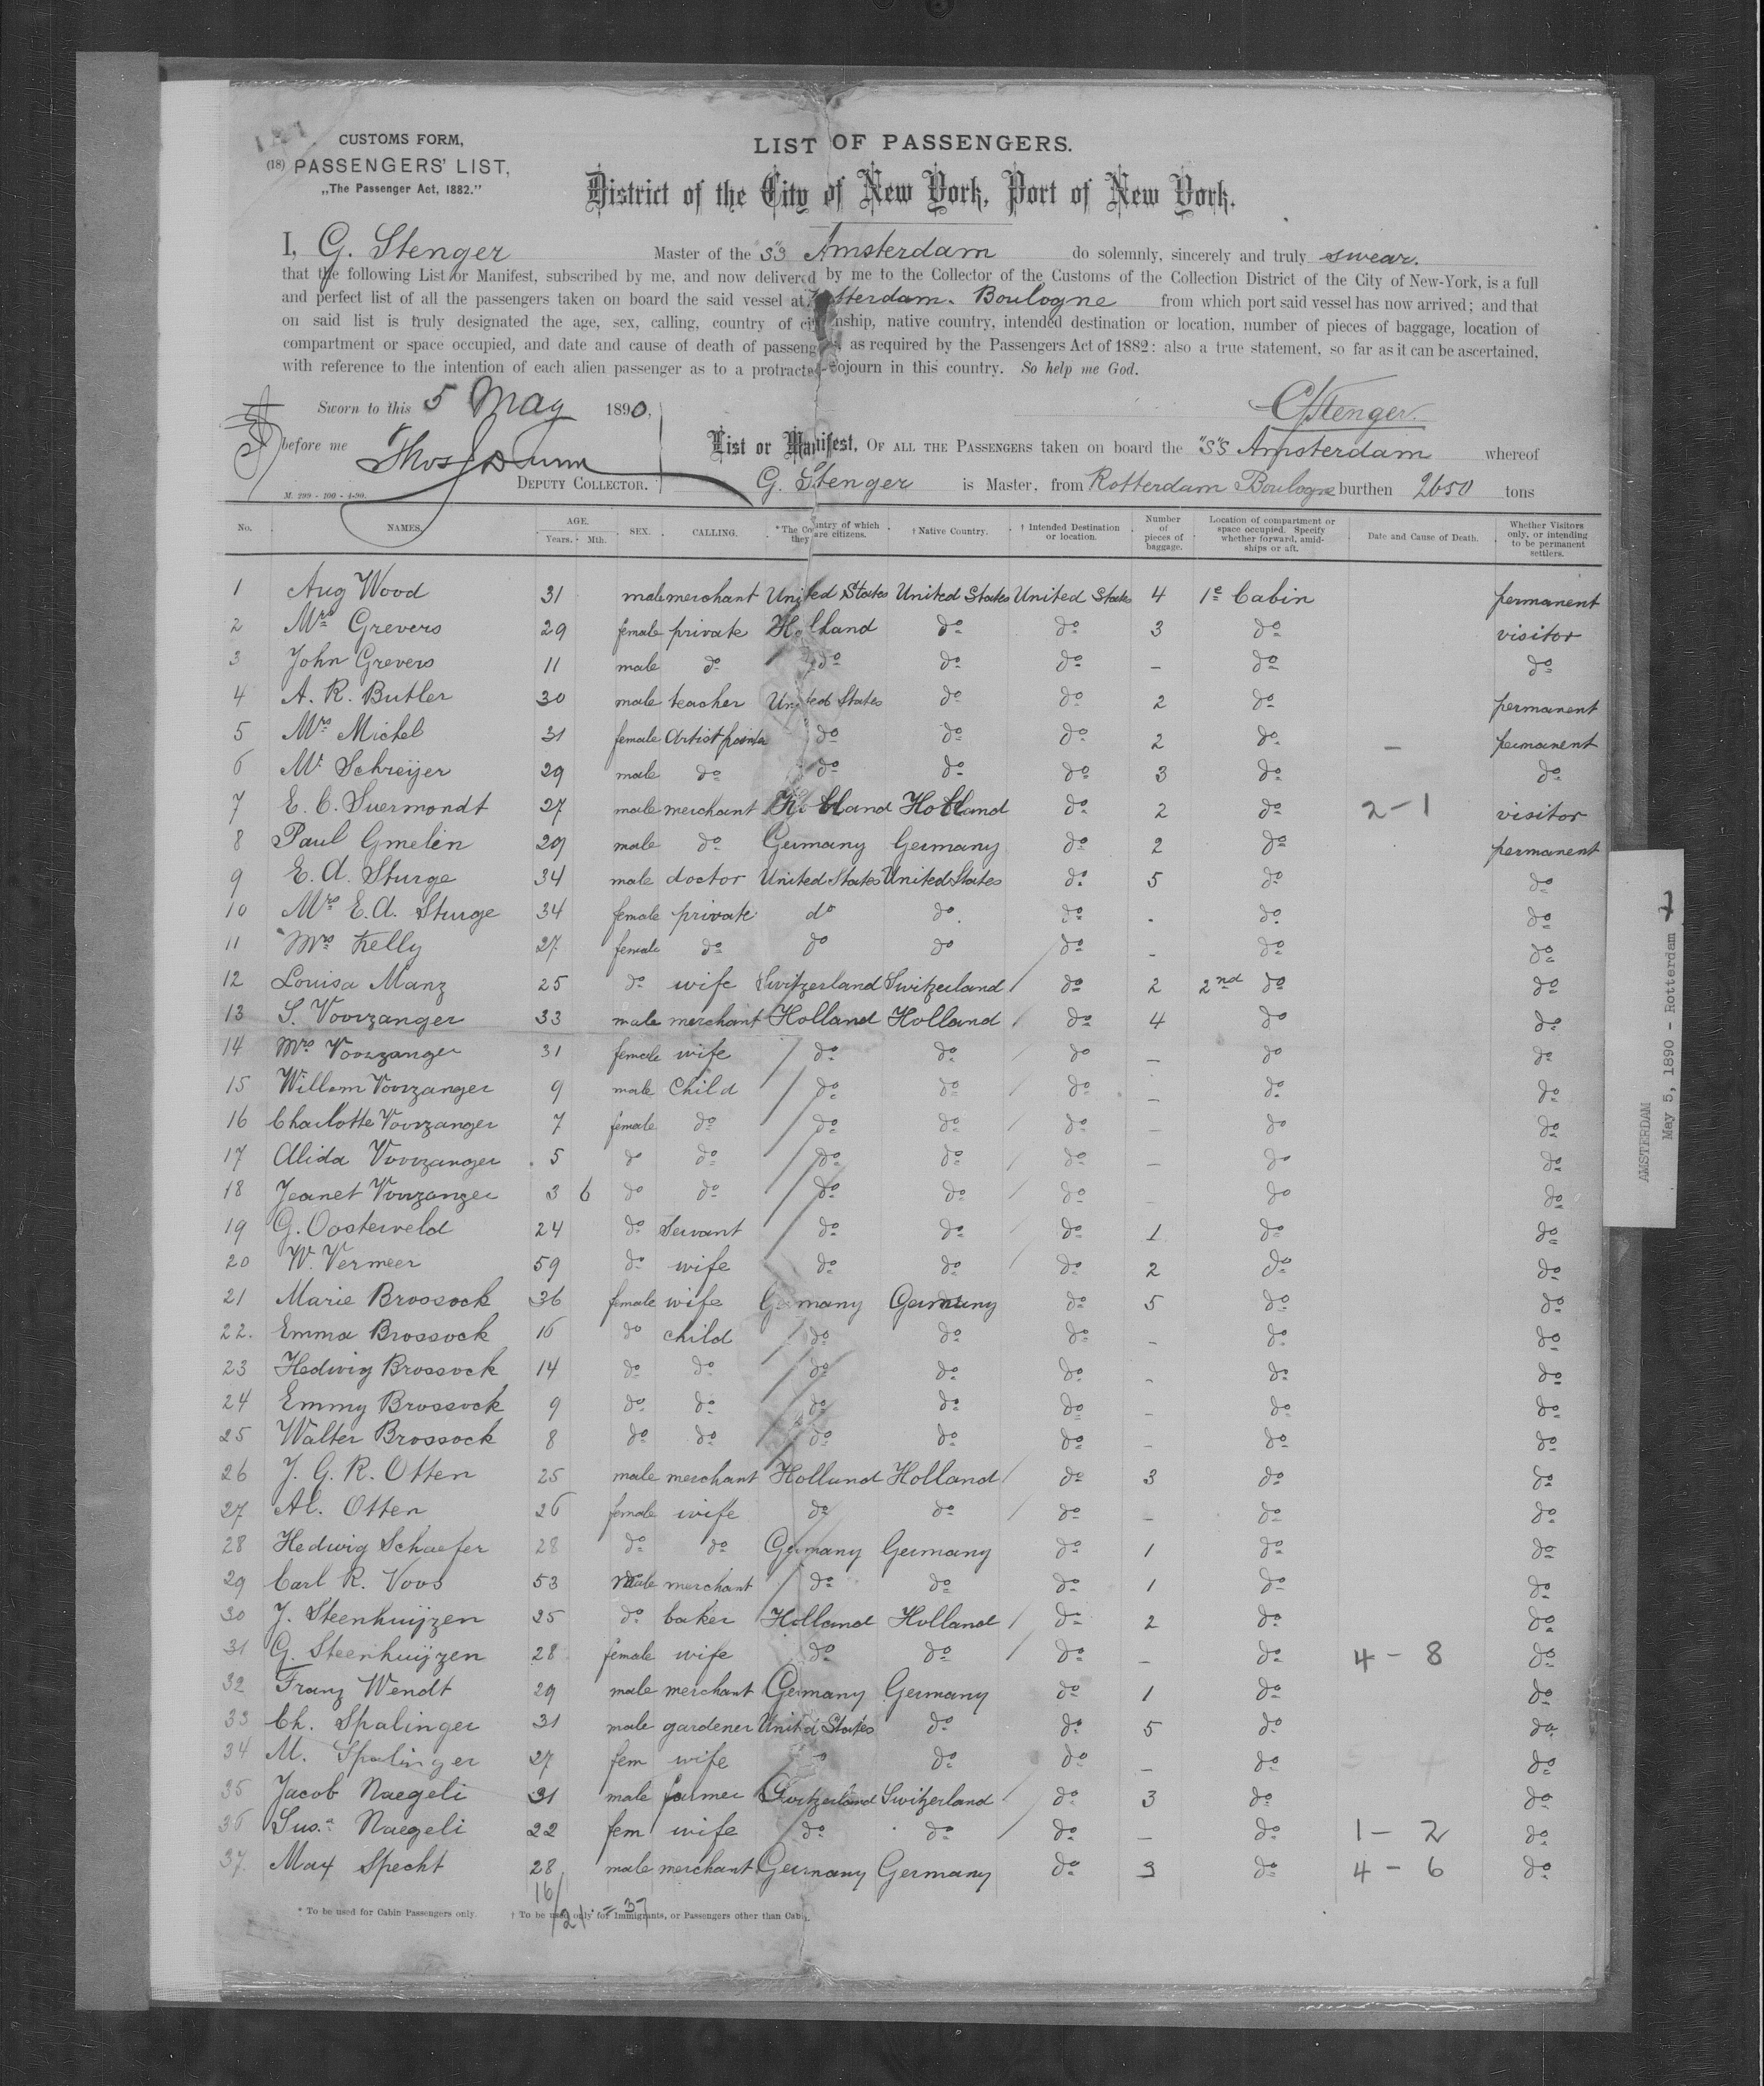 CUSTOMS FORM,
(18) PASSENGERS' LIST,
„The Passenger Act, 1882."
LIST OF PASSENGERS.
District of the City of New York, Port of New York.
I, G. Stenger Master of the SS Amsterdam do solemnly, sincerely and truly swear.
that the following List or Manifest, subscribed by me, and now delivered by me to the Collector of the Customs of the Collection District of the City of New-York, is a full
and perfect list of all the passengers taken on board the said vessel at Rotterdam. Boulogne from which port said vessel has now arrived; and that
on said list is truly designated the age, sex, calling, country of citizenship, native country, intended destination or location, number of pieces of baggage, location of
compartment or space occupied, and date and cause of death of passengers, as required by the Passengers Act of 1882: also a true statement, so far as it can be ascertained,
with reference to the intention of each alien passenger as to a protracted sojourn in this country. So help me God.
Sworn to this 5 May 1890, GStenger.
before me Thos J Dunn
DEPUTY COLLECTOR.
M. 299 - 100 - 4-90.
List or Manifest, OF ALL THE PASSENGERS taken on board the "SS Amsterdam whereof
G. Stenger is Master, from Rotterdam Boulogne burthen 2650 tons
No. NAMES. AGE. Years. Mth. SEX. CALLING. * The Country of which they are citizens. † Native Country. † Intended Destination or location. Number of pieces of baggage. Location of compartment or space occupied. Specify whether forward, amidships or aft. Date and Cause of Death. Whether Visitors only, or intending to be permanent settlers.
1 Aug Wood 31 male merchant United States United States United States 4 1e Cabin permanent
2 Mrs Grevers 29 female private Holland do do 3 do visitor
3 John Grevers 11 male do do do do – do do
4 A. R. Butler 30 male teacher United States do do 2 do permanent
5 Mrs Michel 31 female Artist painter do do do 2 do – permanent
6 Mr Schreijer 29 male do do do do 3 do do
7 E. C. Suermondt 27 male merchant Holland Holland do 2 do 2-1 visitor
8 Paul Gmelin 29 male do Germany Germany do 2 do permanent
9 E. A. Sturge 34 male doctor United States United States do 5 do do
10 Mrs E. A. Sturge 34 female private do do do . do do
11 Mrs Kelly 27 female do do do do – do do
12 Louisa Manz 25 do wife Switzerland Switzerland do 2 2nd do do
13 S. Voorzanger 33 male merchant Holland Holland do 4 do do
14 Mrs Voorzanger 31 female wife do do do – do do
15 Willem Voorzanger 9 male Child do do do – do do
16 Charlotte Voorzanger 7 female do do do do – do do
17 Alida Voorzanger 5 do do do do do – do do
18 Jeanet Voorzanger 3 6 do do do do do – do do
19 G. Oosterveld 24 do Servant do do do 1 do do
20 W. Vermeer 59 do wife do do do 2 do do
21 Marie Brossock 36 female wife Germany Germany do 5 do do
22. Emma Brossock 16 do child do do do – do do
23 Hedwig Brossock 14 do do do do do – do do
24 Emmy Brossock 9 do do do do do – do do
25 Walter Brossock 8 do do do do do – do do
26 J. G. R. Otten 25 male merchant Holland Holland do 3 do do
27 Al. Otten 26 female wife do do do – do do
28 Hedwig Schaefer 28 do do Germany Germany do 1 do do
29 Carl R. Voos 53 male merchant do do do 1 do do
30 J. Steenhuijzen 25 do baker Holland Holland do 2 do do
31 G. Steenhuijzen 28 female wife do do do – do 4-8 do
32 Franz Wendt 29 male merchant Germany Germany do 1 do do
33 Ch. Spalinger 31 male gardener United States do do 5 do do
34 M. Spalinger 27 fem wife do do do – do do
35 Jacob Naegeli 31 male farmer Switzerland Switzerland do 3 do do
36 Sus.a Naegeli 22 fem wife do do do – do 1-2 do
37. Max Specht 28 male merchant Germany Germany do 3 do 4-6 do
16/21 = 37
* To be used for Cabin Passengers only. † To be used only for Immigrants, or Passengers other than Cabin.
AMSTERDAM
May 5, 1890 - Rotterdam